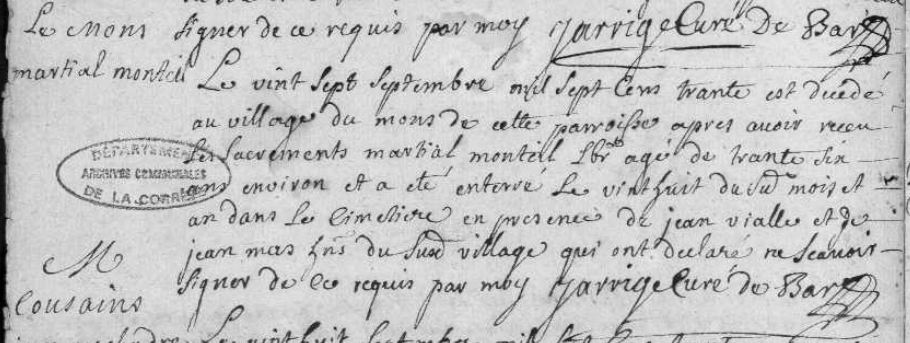 Le Mons signer de ce requis par moy Jarrige Curé De Bar
martial monteil
Le vint sept septembre mil sept Cens trante est decedé
au village du mons de cette parroisse apres avoir receu
les sacrements martial monteil Lbr agé de trante six
ans environ et a eté enterré Le vint huit du sud mois et
an dans Le Cimetiere en presence de jean vialle et de
jean mas hns du susd village qui ont declaré ne scavoir
signer de Ce requis par moy Jarrige Curé de Bar
M
Cousains
DÉPARTEMEN
ARCHIVES COMMUNALES
DE LA CORRÈZE
Le vint huit septembre mil sept